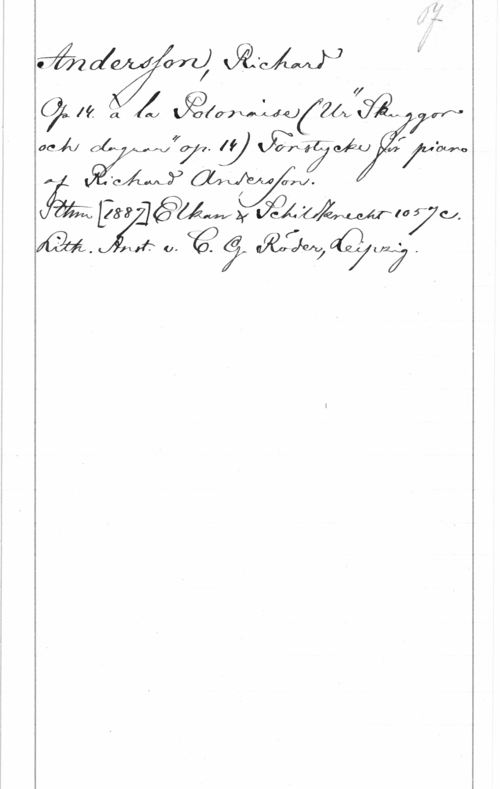 Andersson, Richard
Op 14. à la Polonaise (Ur "Skuggor
och dagrar" op. 14) Tonstycke för piano
af Richard Andersson.
Sthm [1887] Elkan & Schildknecht 1057 c.
Lith. Anst. v. C. G. Röder, Leipzig.